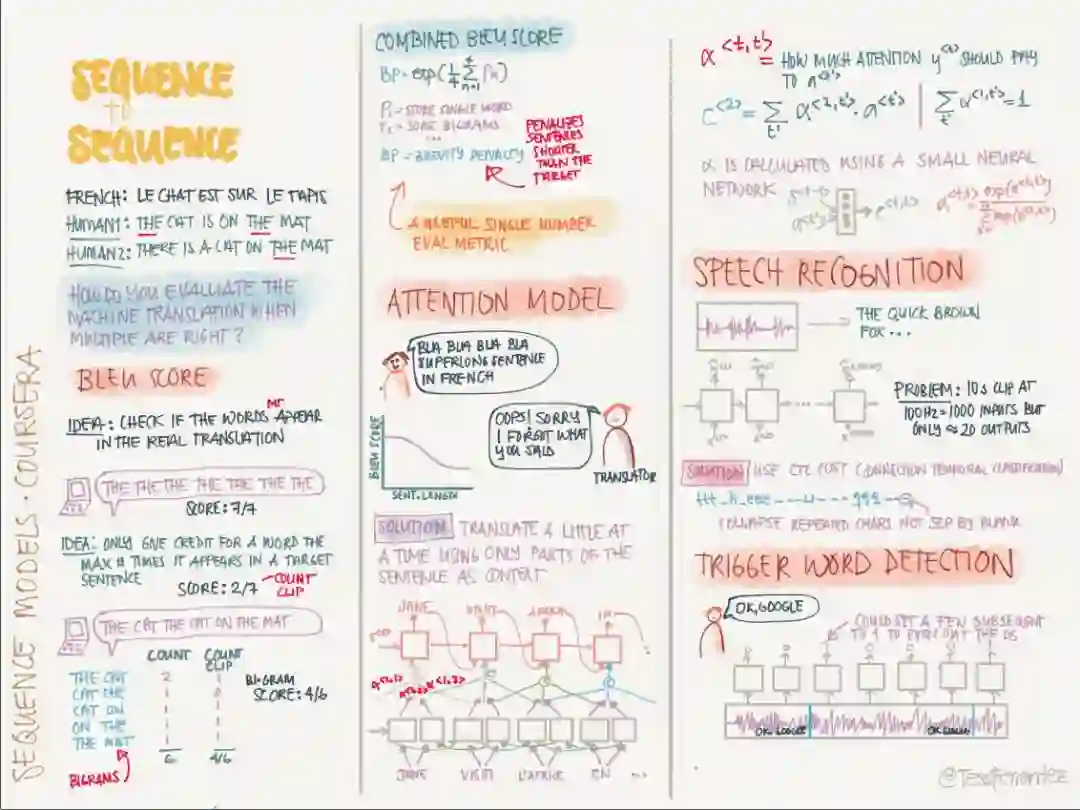 SEQUENCE MODELS · COURSERA
SEQUENCE
to
SEQUENCE
FRENCH: LE CHAT EST SUR LE TAPIS
HUMAN1: THE CAT IS ON THE MAT
HUMAN2: THERE IS A CAT ON THE MAT
HOW DO YOU EVALUATE THE
MACHINE TRANSLATION WHEN
MULTIPLE ARE RIGHT?
BLEU SCORE
MT
IDEA: CHECK IF THE WORDS APPEAR
IN THE REAL TRANSLATION
THE THE THE THE THE THE THE
SCORE: 7/7
IDEA: ONLY GIVE CREDIT FOR A WORD THE
MAX # TIMES IT APPEARS IN A TARGET
SENTENCE
SCORE: 2/7
COUNT
CLIP
THE CAT THE CAT ON THE MAT
COUNT COUNT
CLIP
THE CAT 2 1
CAT THE 1 0
CAT ON 1 1
ON THE 1 1
THE MAT 1 1
6 4/6
BIGRAM
SCORE: 4/6
BIGRAMS
COMBINED BLEU SCORE
BP · exp(1/4 Σ Pn)
n=1
4
P1 = SCORE SINGLE WORD
P2 = SCORE BIGRAMS
...
BP = BREVITY PENALTY
PENALIZES
SENTENCES
SHORTER
THAN THE
TARGET
A USEFUL SINGLE NUMBER
EVAL METRIC
ATTENTION MODEL
BLA BLA BLA BLA
SUPERLONG SENTENCE
IN FRENCH
OOPS! SORRY
I FORGOT WHAT
YOU SAID
TRANSLATOR
BLEU SCORE
SENT. LENGTH
SOLUTION TRANSLATE A LITTLE AT
A TIME USING ONLY PARTS OF THE
SENTENCE AS CONTEXT
JANE VISITS AFRICA IN
JANE VISITE L'AFRIQUE EN ...
α<t,t'> = HOW MUCH ATTENTION y<t> SHOULD PAY
TO a<t'>
C<2> = Σ α<2,t'> · a<t'> | Σ α<1,t'> = 1
t' t'
α IS CALCULATED USING A SMALL NEURAL
NETWORK
SPEECH RECOGNITION
THE QUICK BROWN
FOX ...
PROBLEM: 10s CLIP AT
100Hz = 1000 INPUTS BUT
ONLY ≈ 20 OUTPUTS
SOLUTION USE CTC COST (CONNECTION TEMPORAL CLASSIFICATION)
COLLAPSE REPEATED CHARS NOT SEP BY BLANK
TRIGGER WORD DETECTION
OK, GOOGLE
COULD SET A FEW SUBSEQUENT
TO 1 TO EVEN OUT THE 0s
OK, GOOGLE
OK, GOOGLE